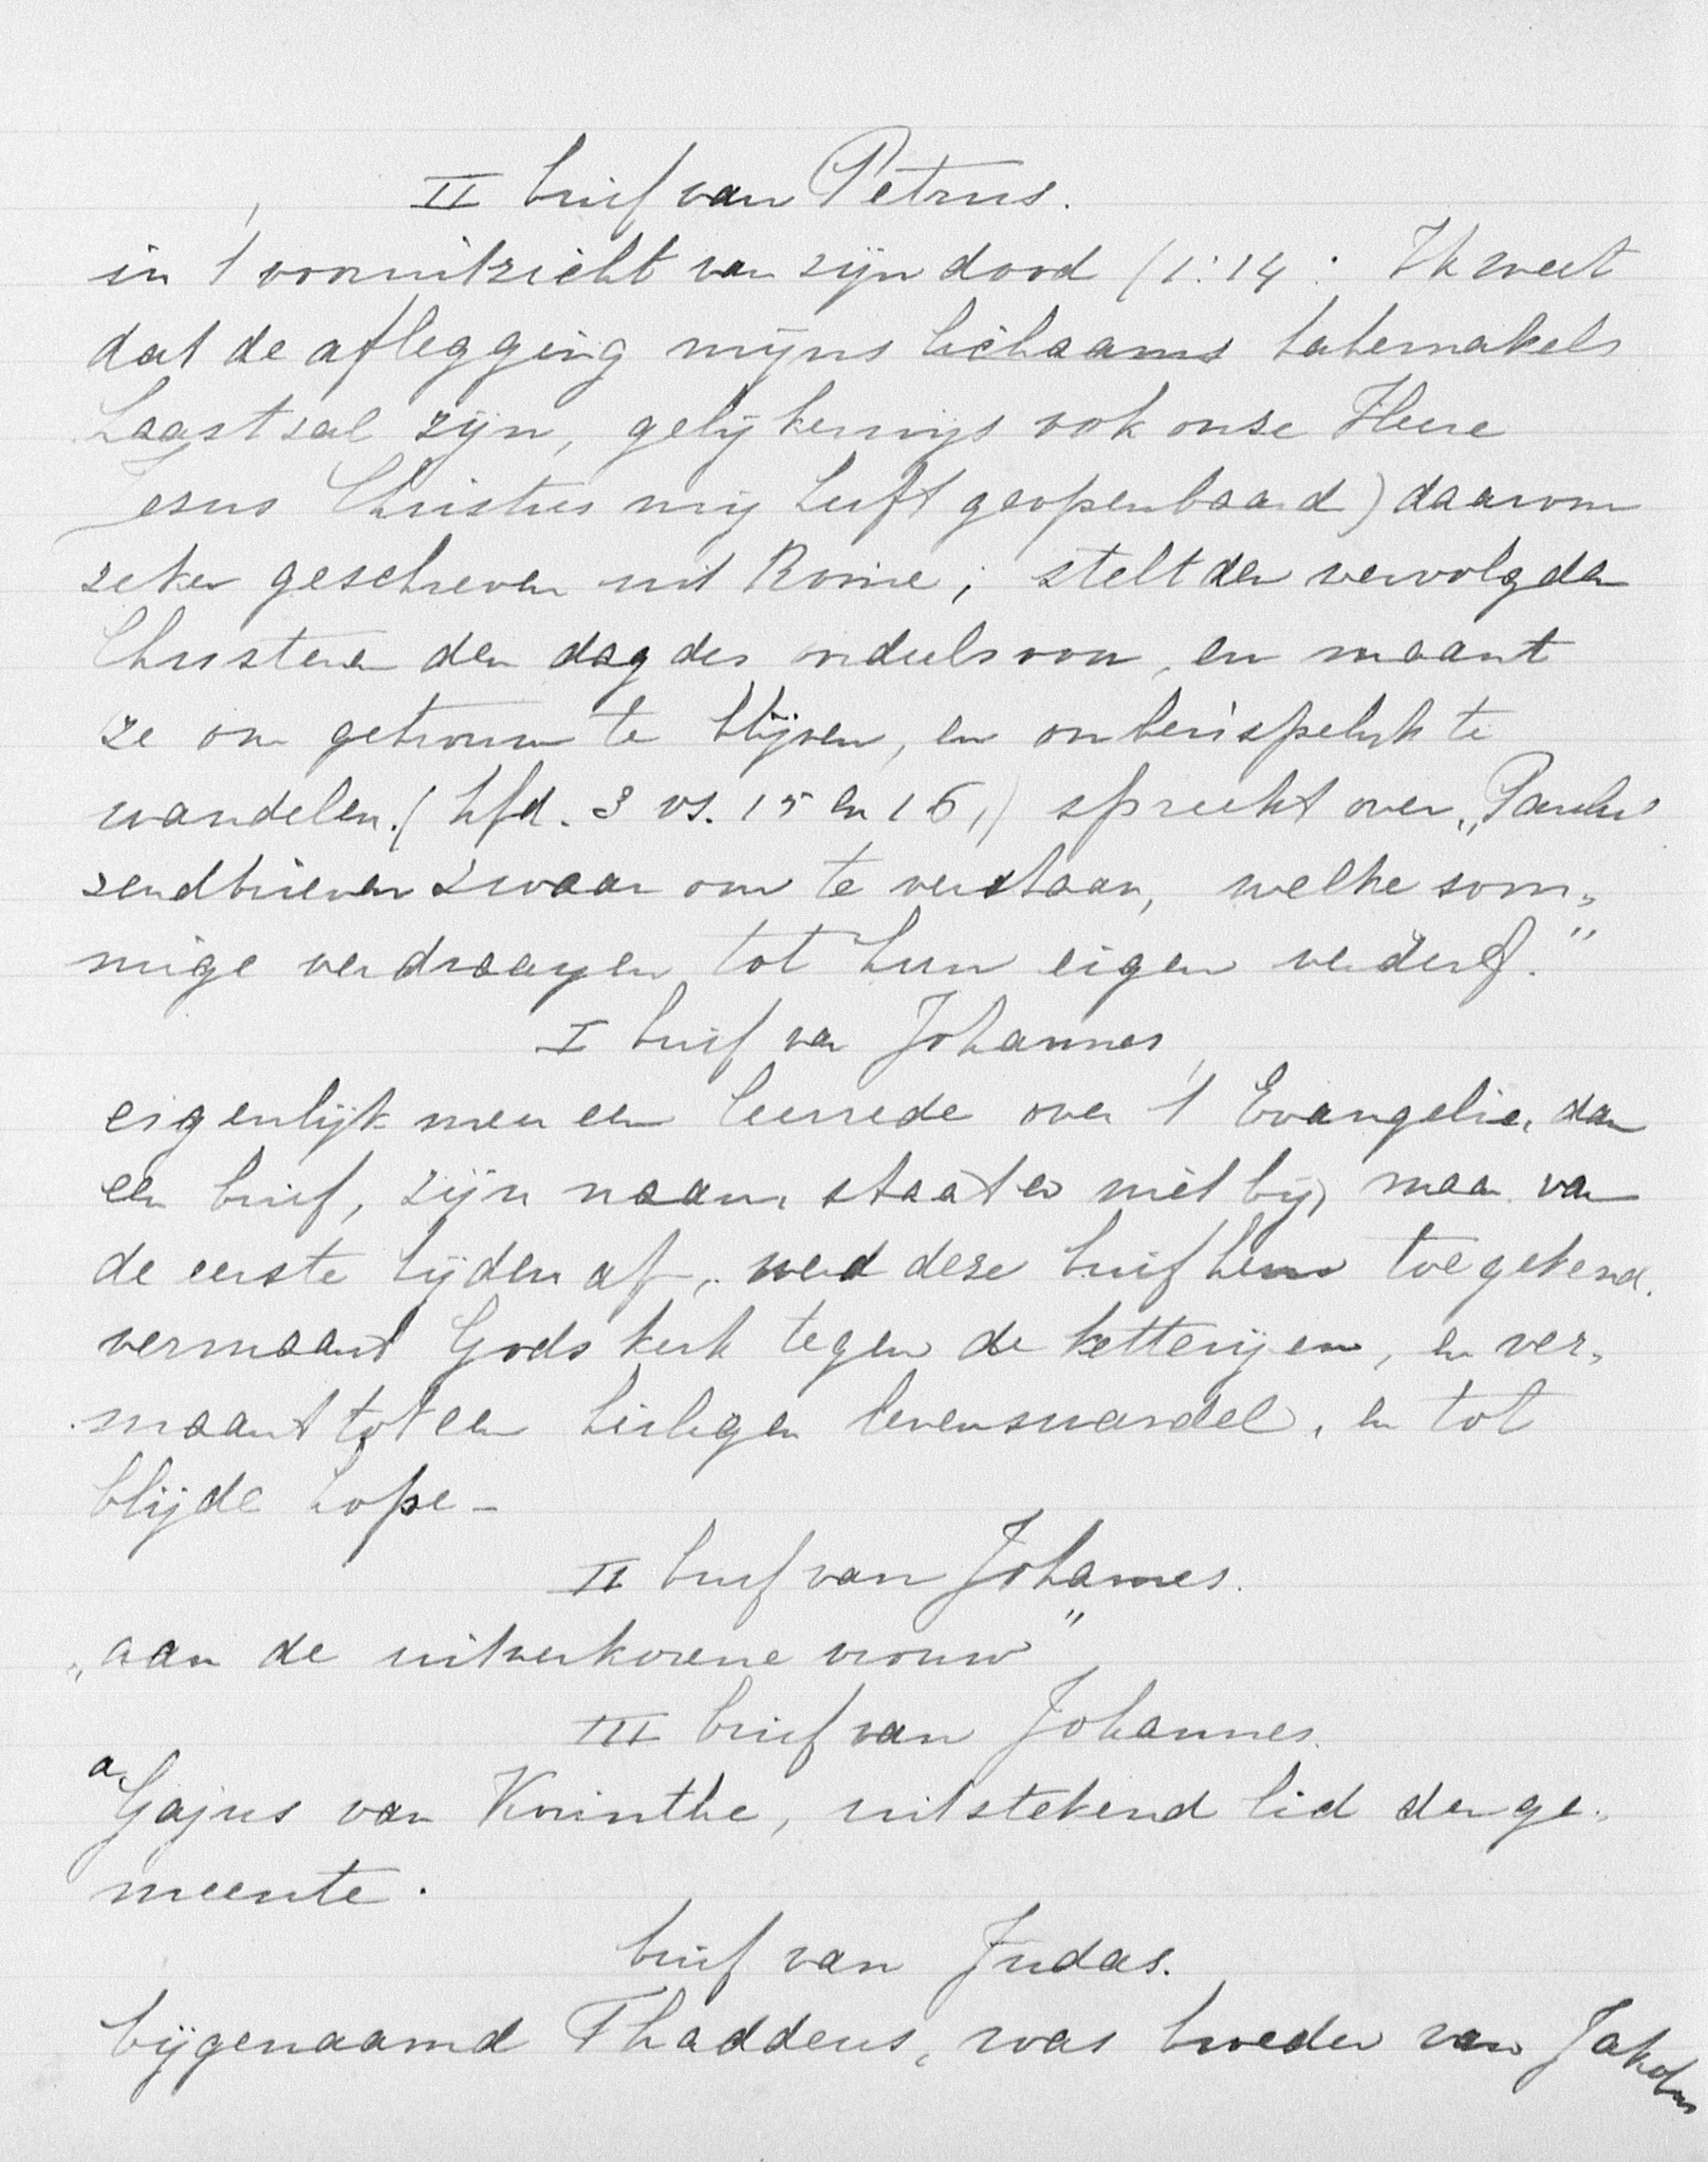 II brief van Petrus.
in 't vooruitzicht van zijn dood (1:14: Ik weet
dat de aflegging mijns lichaams tabernakels
haast zal zijn, gelijkerwijs ook onze Heere
Jesus Christus mij heeft geopenbaard) daarom
zeker geschreven uit Rome; stelt den vervolgden
Christenen den dag des oordeels voor, en maant
ze om getrouw te blijven, en onberispelijk te
wandelen. (hfd. 3 vs. 15 en 16,) spreekt over „Paulus
zendbrieven zwaar om te verstaan, welke som„
mige verdraayen tot hun eigen verderf."
I brief van Johannes
eigenlijk meer een leerrede over 't Evangelie, dan
een brief, zijn naam staat er niet bij, maar van
de eerste tijden af, werd deze brief hem toegekend.
vermaant Gods kerk tegen de ketterijen, en ver„
maant tot een heiligen levenswandel, en tot
blijde hope –
II brief van Johannes.
„aan de uitverkorene vrouw"
III brief van Johannes.
a. Gajus van Korinthe, uitstekend lid der ge„
meente.
brief van Judas.
bijgenaamd Thaddeus, was broeder van Jakobus